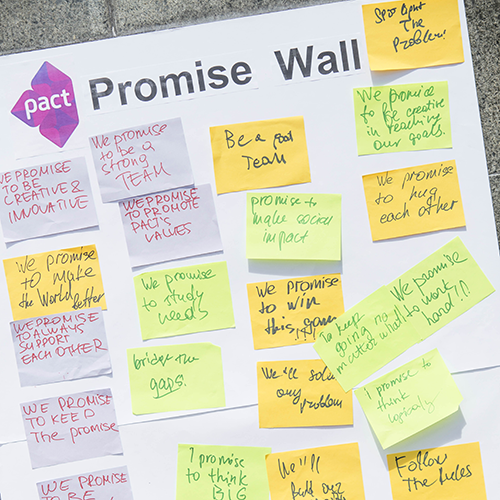 pact
Promise Wall
The
Problem!
We promise
to be a
strong
TEAM
Be a good
Team
We promise
to be creative
in reaching
our goals.
WE PROMISE
TO BE
CREATIVE &
INNOVATIVE
WE PROMISE
TO PROMOTE
PACT'S
VALUES
promise to
make social
impact
We promise
to hug
each other
We promise
to make
the World better
We promise
to study
needs
We promise
to win
this game
To keep
going no
matter what
We promise
to work
hard!!!
WE PROMISE
TO ALWAYS
SUPPORT
EACH OTHER
bridge the
gaps!
We'll solve
any
problem
I promise to
think
WE PROMISE
TO KEEP
The promise
WE PROMISE
TO BE
I promise
to think
BIG
We'll
our
Follow
the Rules